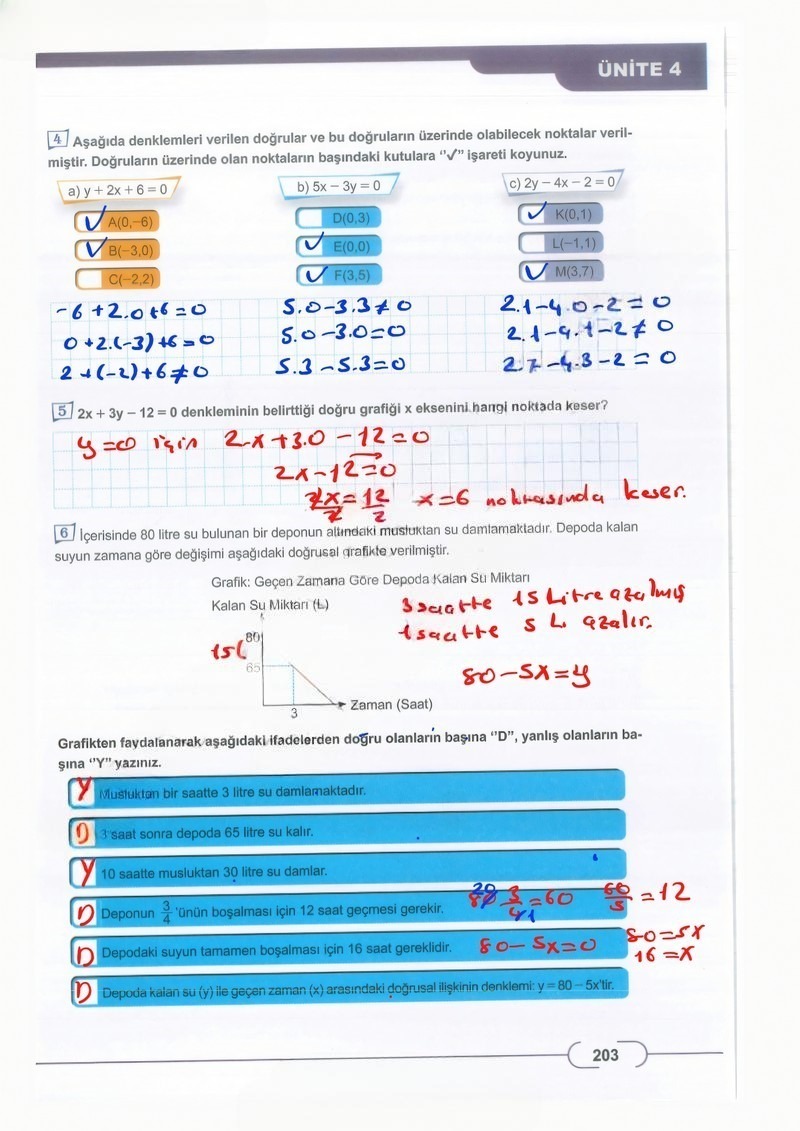 ÜNİTE 4
4 Aşağıda denklemleri verilen doğrular ve bu doğruların üzerinde olabilecek noktalar veril-
miştir. Doğruların üzerinde olan noktaların başındaki kutulara "✓" işareti koyunuz.
a) y + 2x + 6 = 0
✓ A(0,–6)
✓ B(–3,0)
C(–2,2)
b) 5x – 3y = 0
D(0,3)
✓ E(0,0)
✓ F(3,5)
c) 2y – 4x – 2 = 0
✓ K(0,1)
L(–1,1)
✓ M(3,7)
-6 +2.0+6=0
0+2.(-3)+6=0
2+(-2)+6≠0
5.0-3.3≠0
5.0-3.0=0
5.3-5.3=0
2.1-4.0-2=0
2.1-4.1-2≠0
2.7-4.3-2=0
5 2x + 3y – 12 = 0 denkleminin belirttiği doğru grafiği x eksenini hangi noktada keser?
y=0 için 2x+3.0-12=0
2x-12=0
2x/2=12/2 x=6 noktasında keser.
6 İçerisinde 80 litre su bulunan bir deponun altındaki musluktan su damlamaktadır. Depoda kalan
suyun zamana göre değişimi aşağıdaki doğrusal grafikte verilmiştir.
Grafik: Geçen Zamana Göre Depoda Kalan Su Miktarı
Kalan Su Miktarı (L)
80
15(
65
3
Zaman (Saat)
3 saatte 15 Litre azalmış
1 saatte 5 L azalır.
80-5x=y
Grafikten faydalanarak aşağıdaki ifadelerden doğru olanların başına "D", yanlış olanların ba-
şına "Y" yazınız.
Y Musluktan bir saatte 3 litre su damlamaktadır.
D 3 saat sonra depoda 65 litre su kalır.
Y 10 saatte musluktan 30 litre su damlar.
D Deponun 3/4 'ünün boşalması için 12 saat geçmesi gerekir. 20 80 3/4 1=60 60/5=12
D Depodaki suyun tamamen boşalması için 16 saat gereklidir. 80-5x=0 80=5x
16=x
D Depoda kalan su (y) ile geçen zaman (x) arasındaki doğrusal ilişkinin denklemi: y = 80 – 5x'tir.
203